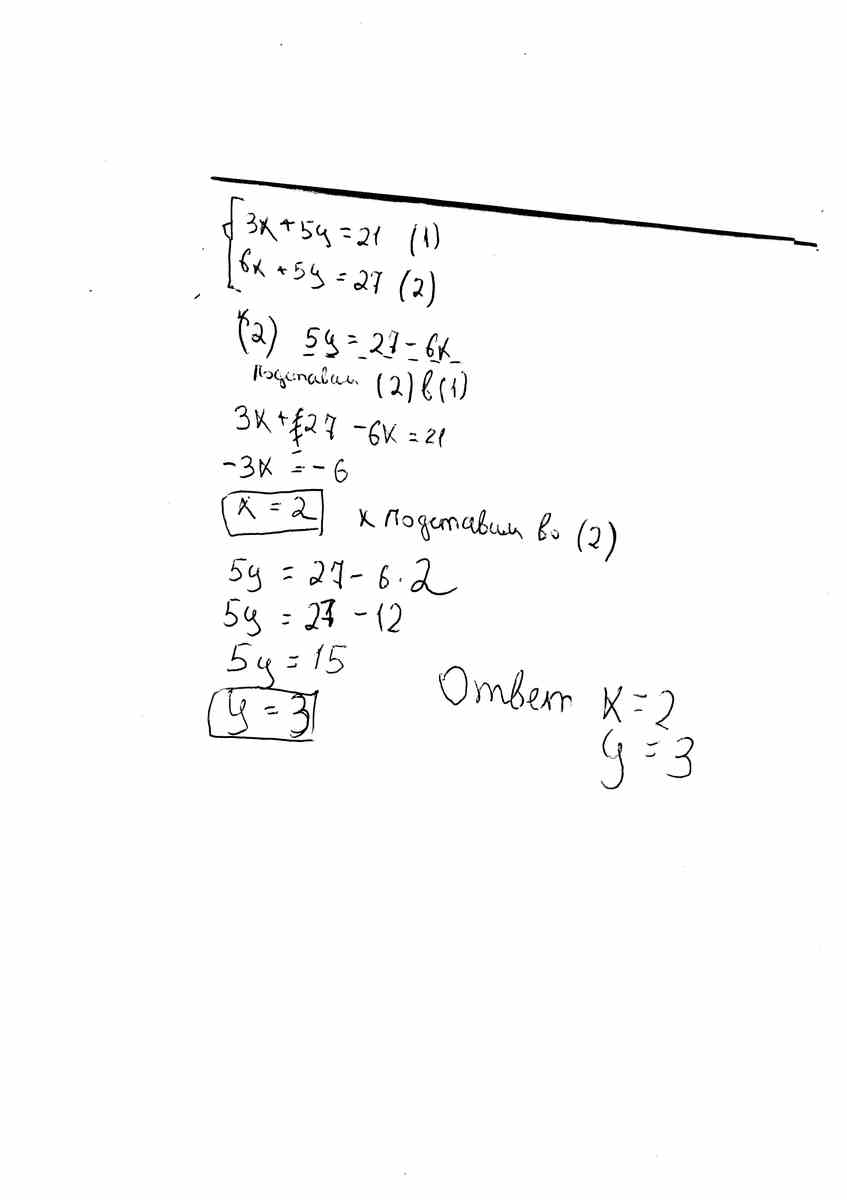 3x + 5y = 21 (1)
6x + 5y = 27 (2)
(2) 5y = 27 - 6x
Подставим (2) в (1)
3x + 27 - 6x = 21
-3x = -6
x = 2 x подставим во (2)
5y = 27 - 6 · 2
5y = 27 - 12
5y = 15
y = 3
Ответ x = 2
y = 3